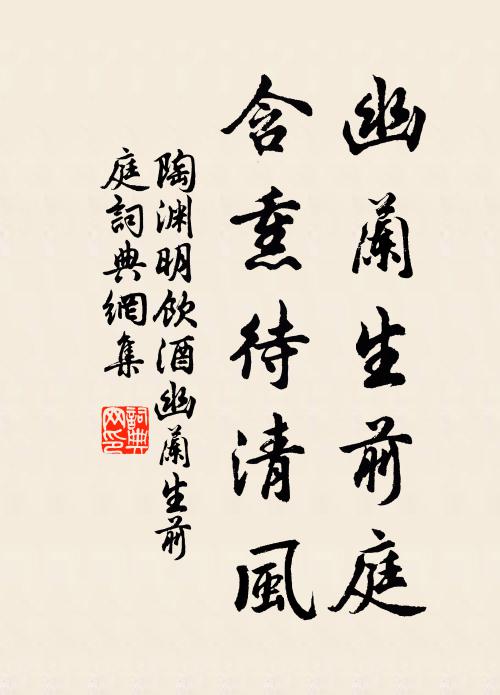 幽蘭生前庭
含熏待清風
陶渊明飲酒幽蘭生前
庭詞典網集
詞典
网印